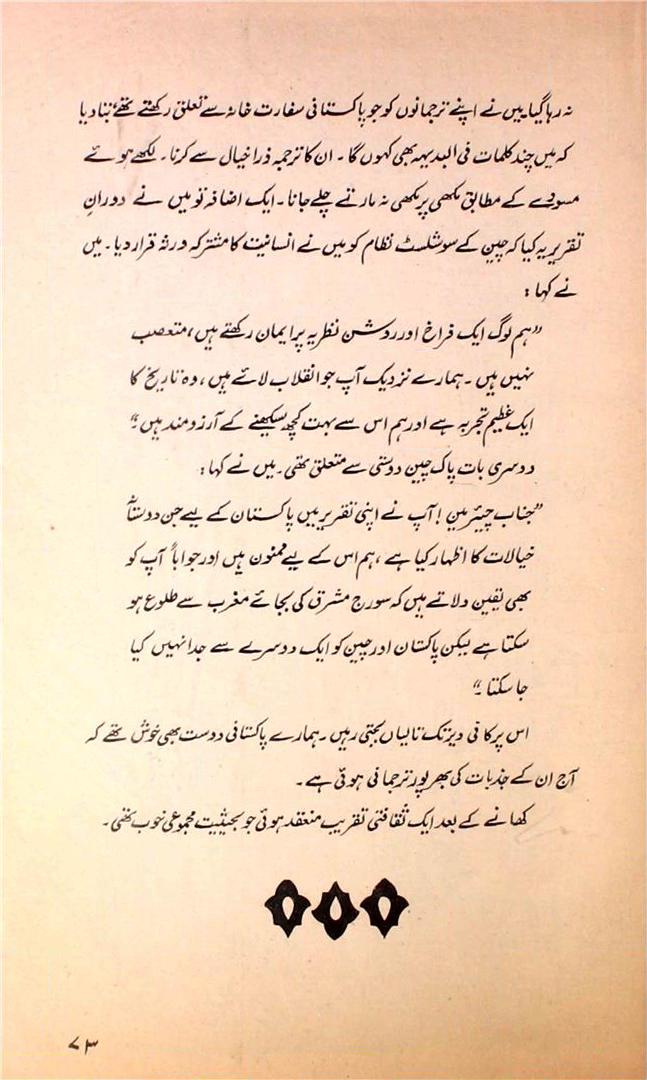 نہ رہا گیا۔ میں نے اپنے ترجمانوں کو جو پاکستانی سفارت خانہ سے تعلق رکھتے تھے، بتا دیا
کہ میں چند کلمات فی البدیہہ بھی کہوں گا۔ ان کا ترجمہ ذرا خیال سے کرنا۔ لکھے ہوئے
مسودے کے مطابق مکھی پر مکھی نہ مارتے چلے جانا۔ ایک اضافہ تو میں نے دورانِ
تقریر یہ کیا کہ چین کے سوشلسٹ نظام کو میں نے انسانیت کا مشترکہ ورثہ قرار دیا۔ میں
نے کہا:
”ہم لوگ ایک فراخ اور روشن نظریہ پر ایمان رکھتے ہیں، متعصب
نہیں ہیں۔ ہمارے نزدیک آپ جو انقلاب لائے ہیں، وہ تاریخ کا
ایک عظیم تجربہ ہے اور ہم اس سے بہت کچھ سیکھنے کے آرزومند ہیں۔“
دوسری بات پاک چین دوستی سے متعلق تھی۔ میں نے کہا:
”جناب چیئرمین! آپ نے اپنی تقریر میں پاکستان کے لیے جن دوستانہ
خیالات کا اظہار کیا ہے، ہم اس کے لیے ممنون ہیں اور جواباً آپ کو
بھی یقین دلاتے ہیں کہ سورج مشرق کی بجائے مغرب سے طلوع ہو
سکتا ہے لیکن پاکستان اور چین کو ایک دوسرے سے جدا نہیں کیا
جا سکتا۔“
اس پر کافی دیر تک تالیاں بجتی رہیں۔ ہمارے پاکستانی دوست بھی خوش تھے کہ
آج ان کے جذبات کی بھرپور ترجمانی ہوئی ہے۔
کھانے کے بعد ایک ثقافتی تقریب منعقد ہوئی جو بحیثیت مجموعی خوب تھی۔
۷۳